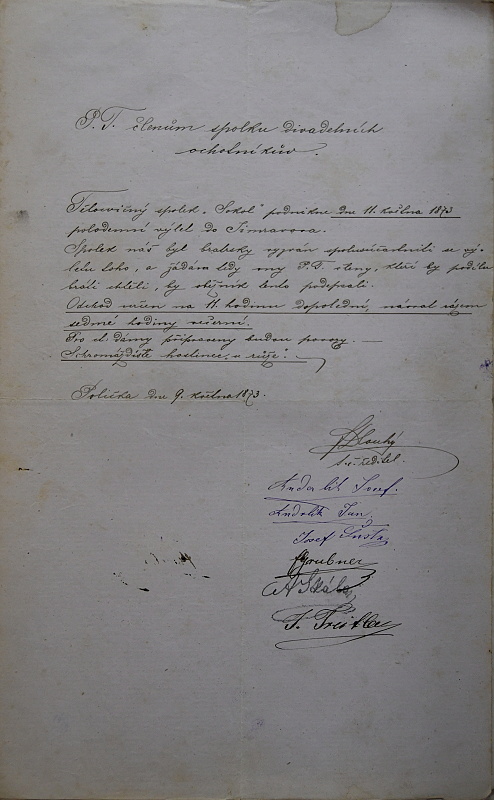 P. T. členům spolku divadelních
ochotníkův.
Tělocvičný spolek „Sokol" podnikne dne 11. května 1873
polodenní výlet do
Spolek náš byl bratrsky vyzván spoluúčastniti se vý-
letu toho, a žádám tedy ony P. T. členy, kteří by podílu
bráti chtěli, by oběžník tento podepsali.
Odchod určen na 11. hodinu dopolední, návrat rázem
sedmé hodiny večerní.
Pro ct. dámy připraveny budou povozy. —
Shromáždiště hostinec „u růže".
Polička dne 9. května 1873.
Dlouhý
t. č. ředitel.
Andrlík Josef.
Andrlík Jan
Josef Šusta
Grubner
A